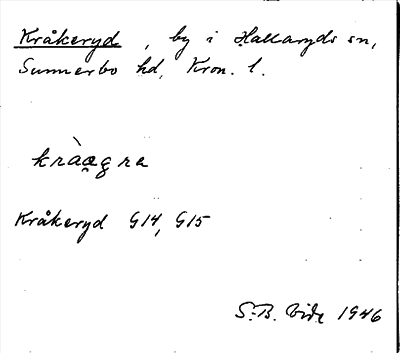 Kråkeryd, by i Hallaryds sn,
Sunnerbo hd, Kron. l.
kràagra
Kråkeryd G14, G15
S.-B. Vide 1946